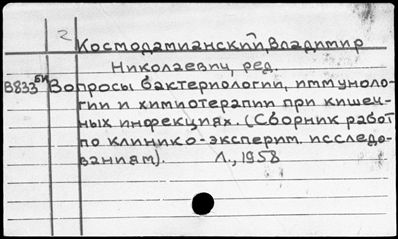 2
Космодамианский, Владимир
Николаевич, ред.
В833 БИ Вопросы бактериологии, иммуноло-
гии и химиотерапии при кишеч-
ных инфекциях. (Сборник работ
по клинико-эксперим. исследо-
ваниям). Л., 1958